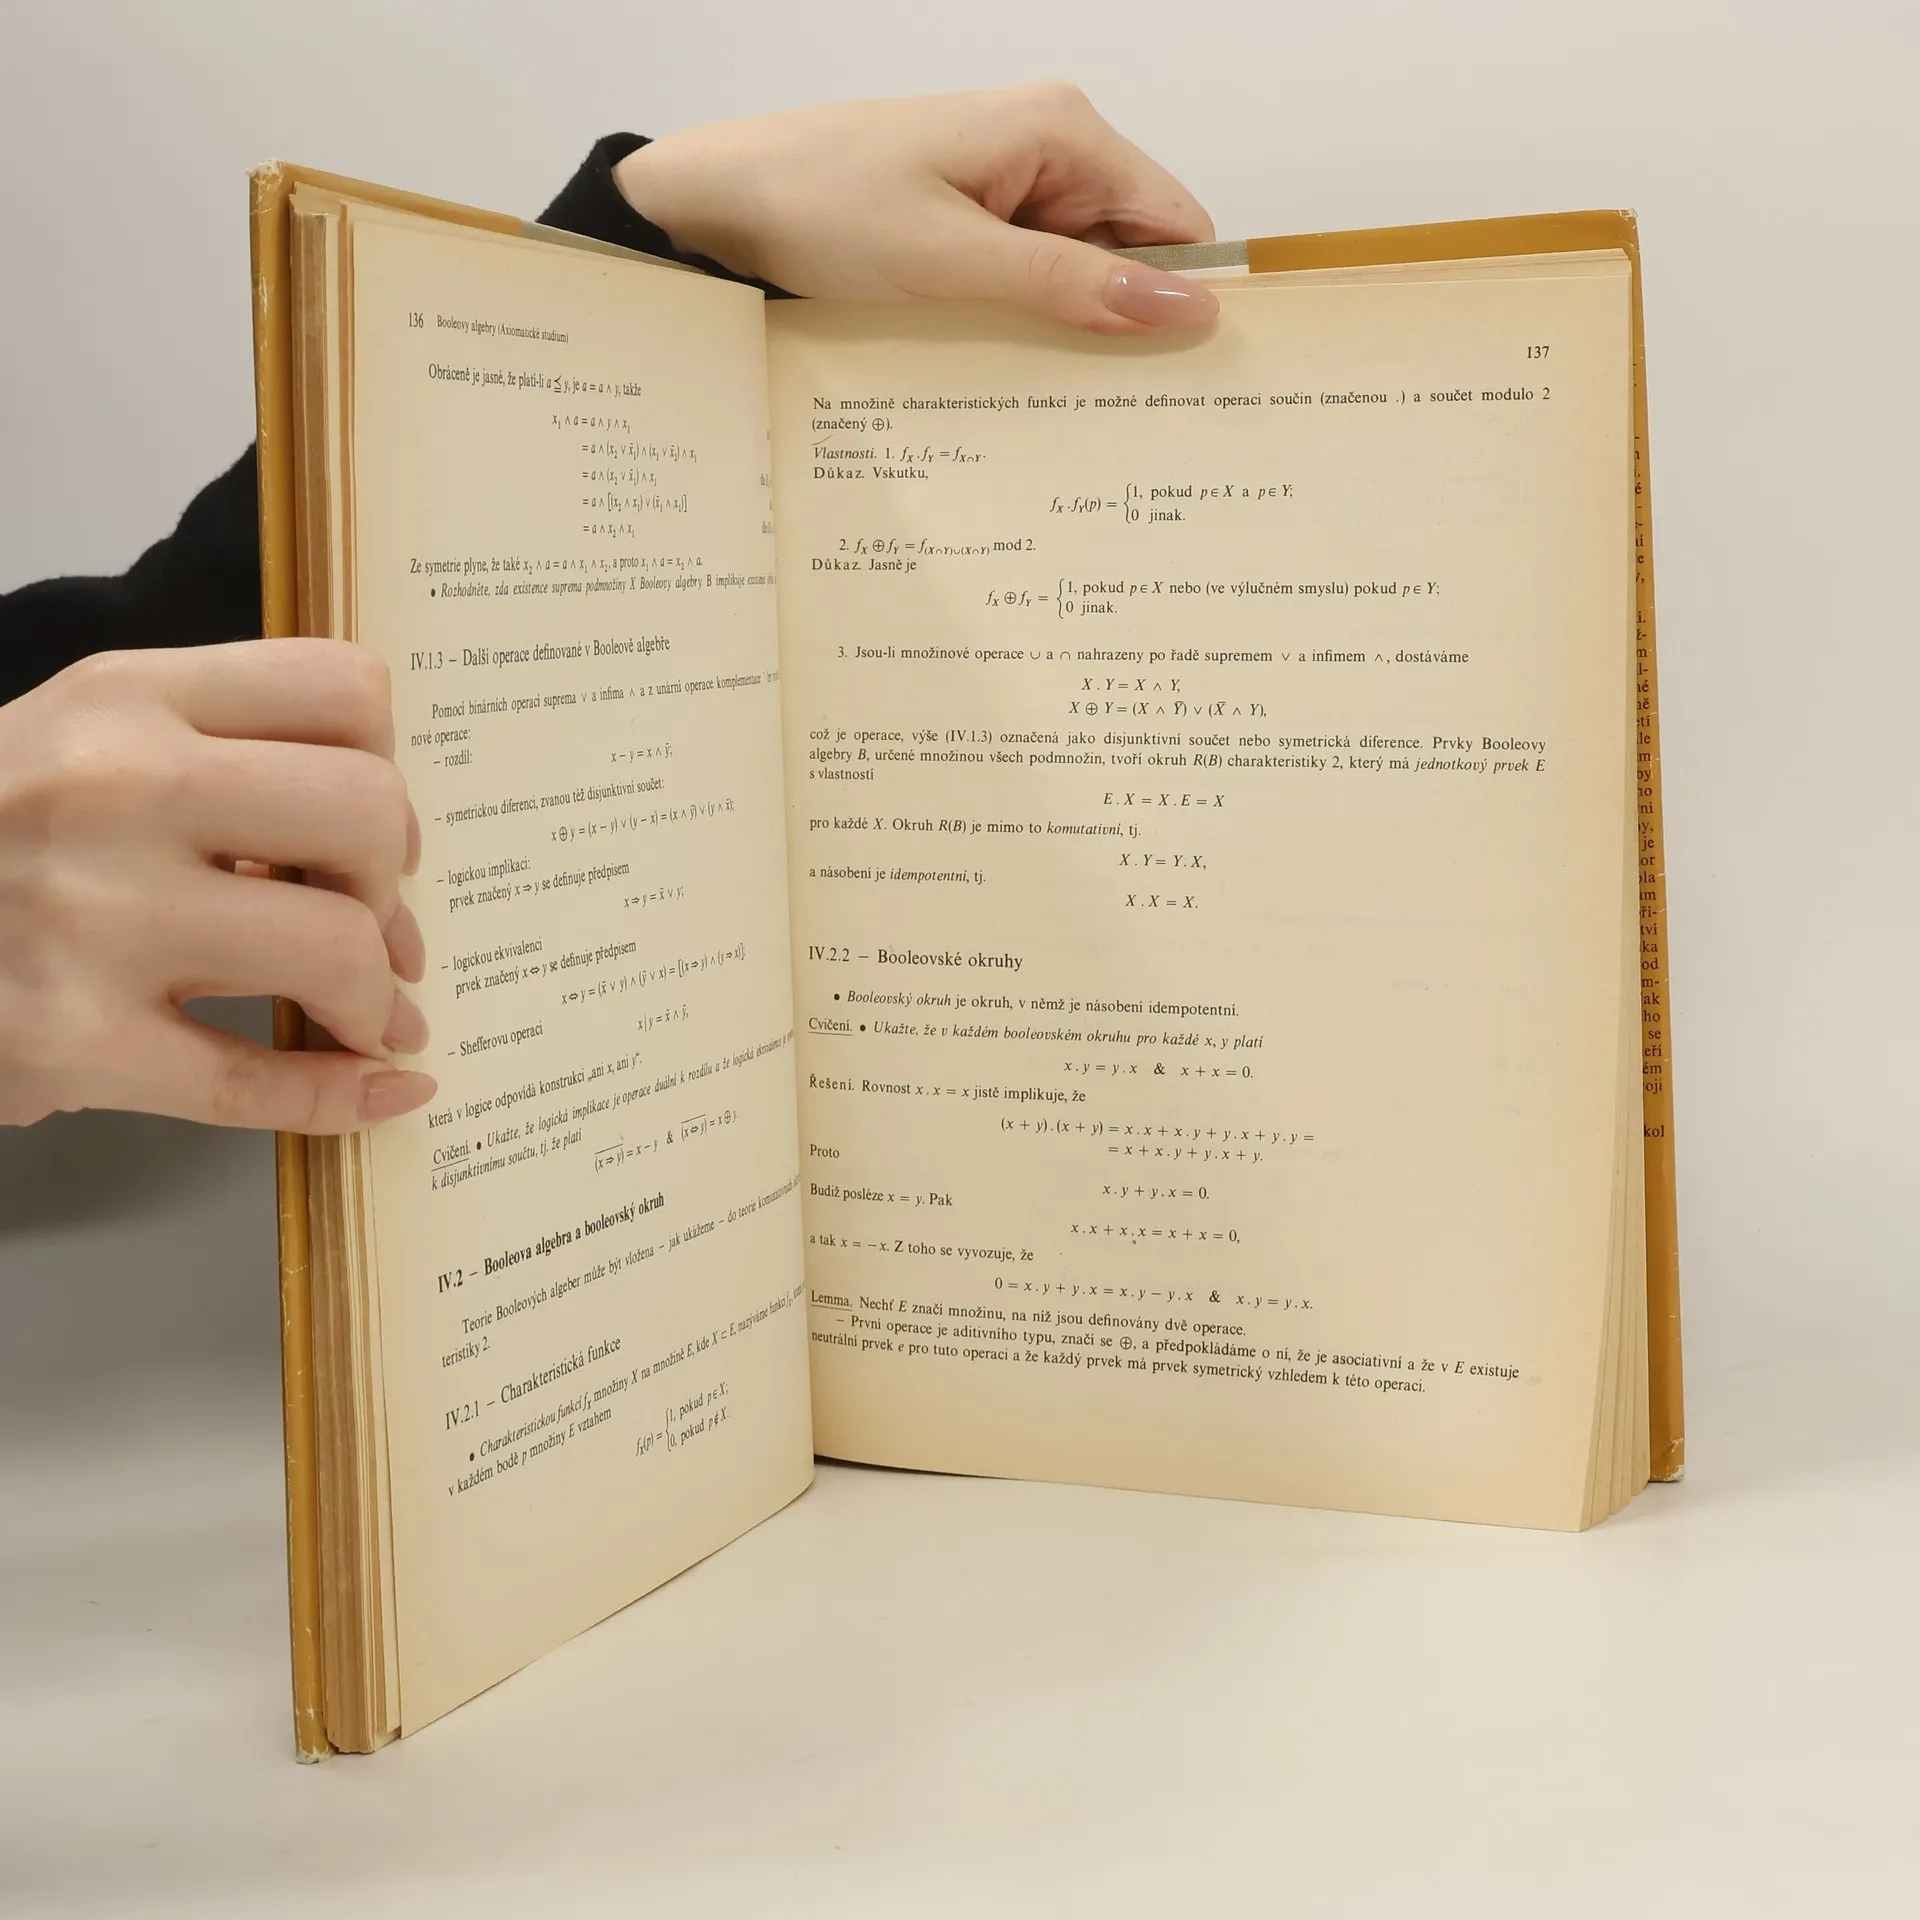 136 Booleovy algebry (Axiomatické studium)
Obráceně je jasné, že platí-li a ≦ y, je a = a ∧ y, takže
x₁ ∧ a = a ∧ y ∧ x₁
= a ∧ (x₂ ∨ x̄₁) ∧ (x₁ ∨ x̄₂) ∧ x₁
= a ∧ (x₂ ∨ x̄₁) ∧ x₁
= a ∧ [(x₂ ∧ x₁) ∨ (x̄₁ ∧ x₁)]
= a ∧ x₂ ∧ x₁
Ze symetrie plyne, že také x₂ ∧ a = a ∧ x₁ ∧ x₂, a proto x₁ ∧ a = x₂ ∧ a.
• Rozhodněte, zda existence suprema podmnožiny X Booleovy algebry B implikuje
IV.1.3 – Další operace definované v Booleově algebře
Pomocí binárních operací suprema ∨ a infima ∧ a z unární operace komplementace
nové operace:
– rozdíl:
x − y = x ∧ ȳ;
– symetrickou diferenci, zvanou též disjunktivní součet:
x ⊕ y = (x − y) ∨ (y − x) = (x ∧ ȳ) ∨ (y ∧ x̄);
– logickou implikaci:
prvek značený x ⇒ y se definuje předpisem
x ⇒ y = x̄ ∨ y;
– logickou ekvivalenci
prvek značený x ⇔ y se definuje předpisem
x ⇔ y = (x̄ ∨ y) ∧ (ȳ ∨ x) = [(x ⇒ y) ∧ (y ⇒ x)];
– Shefferovu operaci
x | y = x̄ ∧ ȳ,
která v logice odpovídá konstrukci „ani x, ani y“.
Cvičení. • Ukažte, že logická implikace je operace duální k rozdílu a že logická ekvivalence je
k disjunktivnímu součtu, tj. že platí
(x ⇒ y)̅ = x − y & (x ⇔ y)̅ = x ⊕ y.
IV.2 – Booleova algebra a booleovský okruh
Teorie Booleových algeber může být vložena – jak ukážeme – do teorie komutativních
teristiky 2.
IV.2.1 – Charakteristická funkce
• Charakteristickou funkcí f_X množiny X na množině E, kde X ⊂ E, nazýváme funkci
v každém bodě p množiny E vztahem
f_X(p) = {1, pokud p ∈ X;
{0, pokud p ∉ X.
137
Na množině charakteristických funkcí je možné definovat operaci součin (značenou .) a součet modulo 2
(značený ⊕).
Vlastnosti. 1. f_X . f_Y = f_{X∩Y}.
Důkaz. Vskutku,
f_X . f_Y(p) = {1, pokud p ∈ X a p ∈ Y;
{0 jinak.
2. f_X ⊕ f_Y = f_{(X∩Y)∪(X∩Y)} mod 2.
Důkaz. Jasně je
f_X ⊕ f_Y = {1, pokud p ∈ X nebo (ve výlučném smyslu) pokud p ∈ Y;
{0 jinak.
3. Jsou-li množinové operace ∪ a ∩ nahrazeny po řadě supremem ∨ a infimem ∧, dostáváme
X . Y = X ∧ Y,
X ⊕ Y = (X ∧ Ȳ) ∨ (X̄ ∧ Y),
což je operace, výše (IV.1.3) označená jako disjunktivní součet nebo symetrická diference. Prvky Booleovy
algebry B, určené množinou všech podmnožin, tvoří okruh R(B) charakteristiky 2, který má jednotkový prvek E
s vlastností
E . X = X . E = X
pro každé X. Okruh R(B) je mimo to komutativní, tj.
X . Y = Y . X,
a násobení je idempotentní, tj.
X . X = X.
IV.2.2 – Booleovské okruhy
• Booleovský okruh je okruh, v němž je násobení idempotentní.
Cvičení. • Ukažte, že v každém booleovském okruhu pro každé x, y platí
x . y = y . x & x + x = 0.
Řešení. Rovnost x . x = x jistě implikuje, že
(x + y) . (x + y) = x . x + x . y + y . x + y . y =
= x + x . y + y . x + y.
Proto
x . y + y . x = 0.
Budiž posléze x = y. Pak
x . x + x . x = x + x = 0,
a tak x = −x. Z toho se vyvozuje, že
0 = x . y + y . x = x . y − y . x & x . y = y . x.
Lemma. Nechť E značí množinu, na níž jsou definovány dvě operace.
– První operace je aditivního typu, značí se ⊕, a předpokládáme o ní, že je asociativní a že v E existuje
neutrální prvek e pro tuto operaci a že každý prvek má prvek symetrický vzhledem k této operaci.